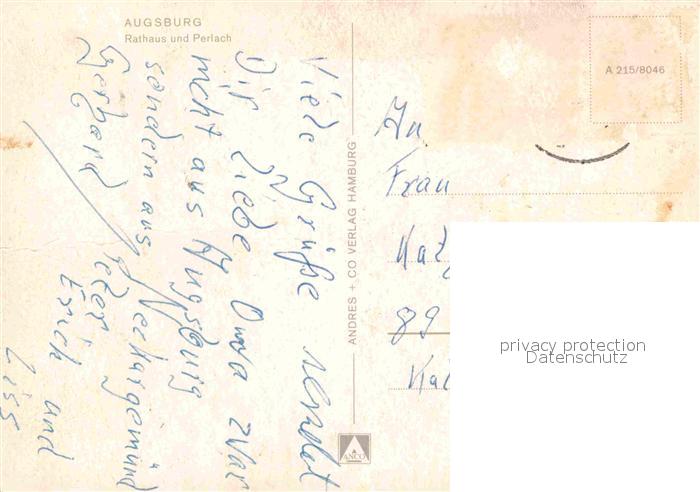 AUGSBURG
Rathaus und Perlach
Viele Grüße sendet
Dir liebe Oma zwar
nicht aus Augsburg
sondern aus Neckargemünd
Gerhard Peter
Erich und
ANDRES + CO VERLAG HAMBURG
ANCO
A 215/8046
An
Frau
89
privacy protection
Datenschutz